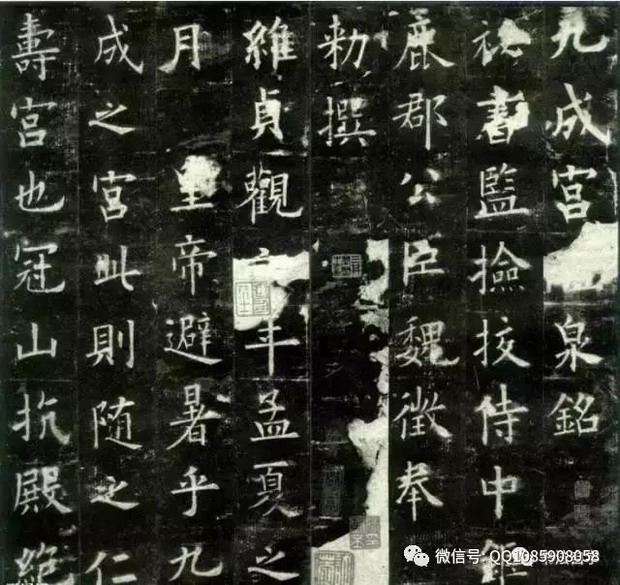 九成宮泉銘
祕書監撿挍侍中鉅
鹿郡公臣魏徵奉
勑撰
維貞觀六年孟夏之
月皇帝避暑乎九
成之宮此則随之仁
壽宮也冠山抗殿絶
微信号: QQ1085908058